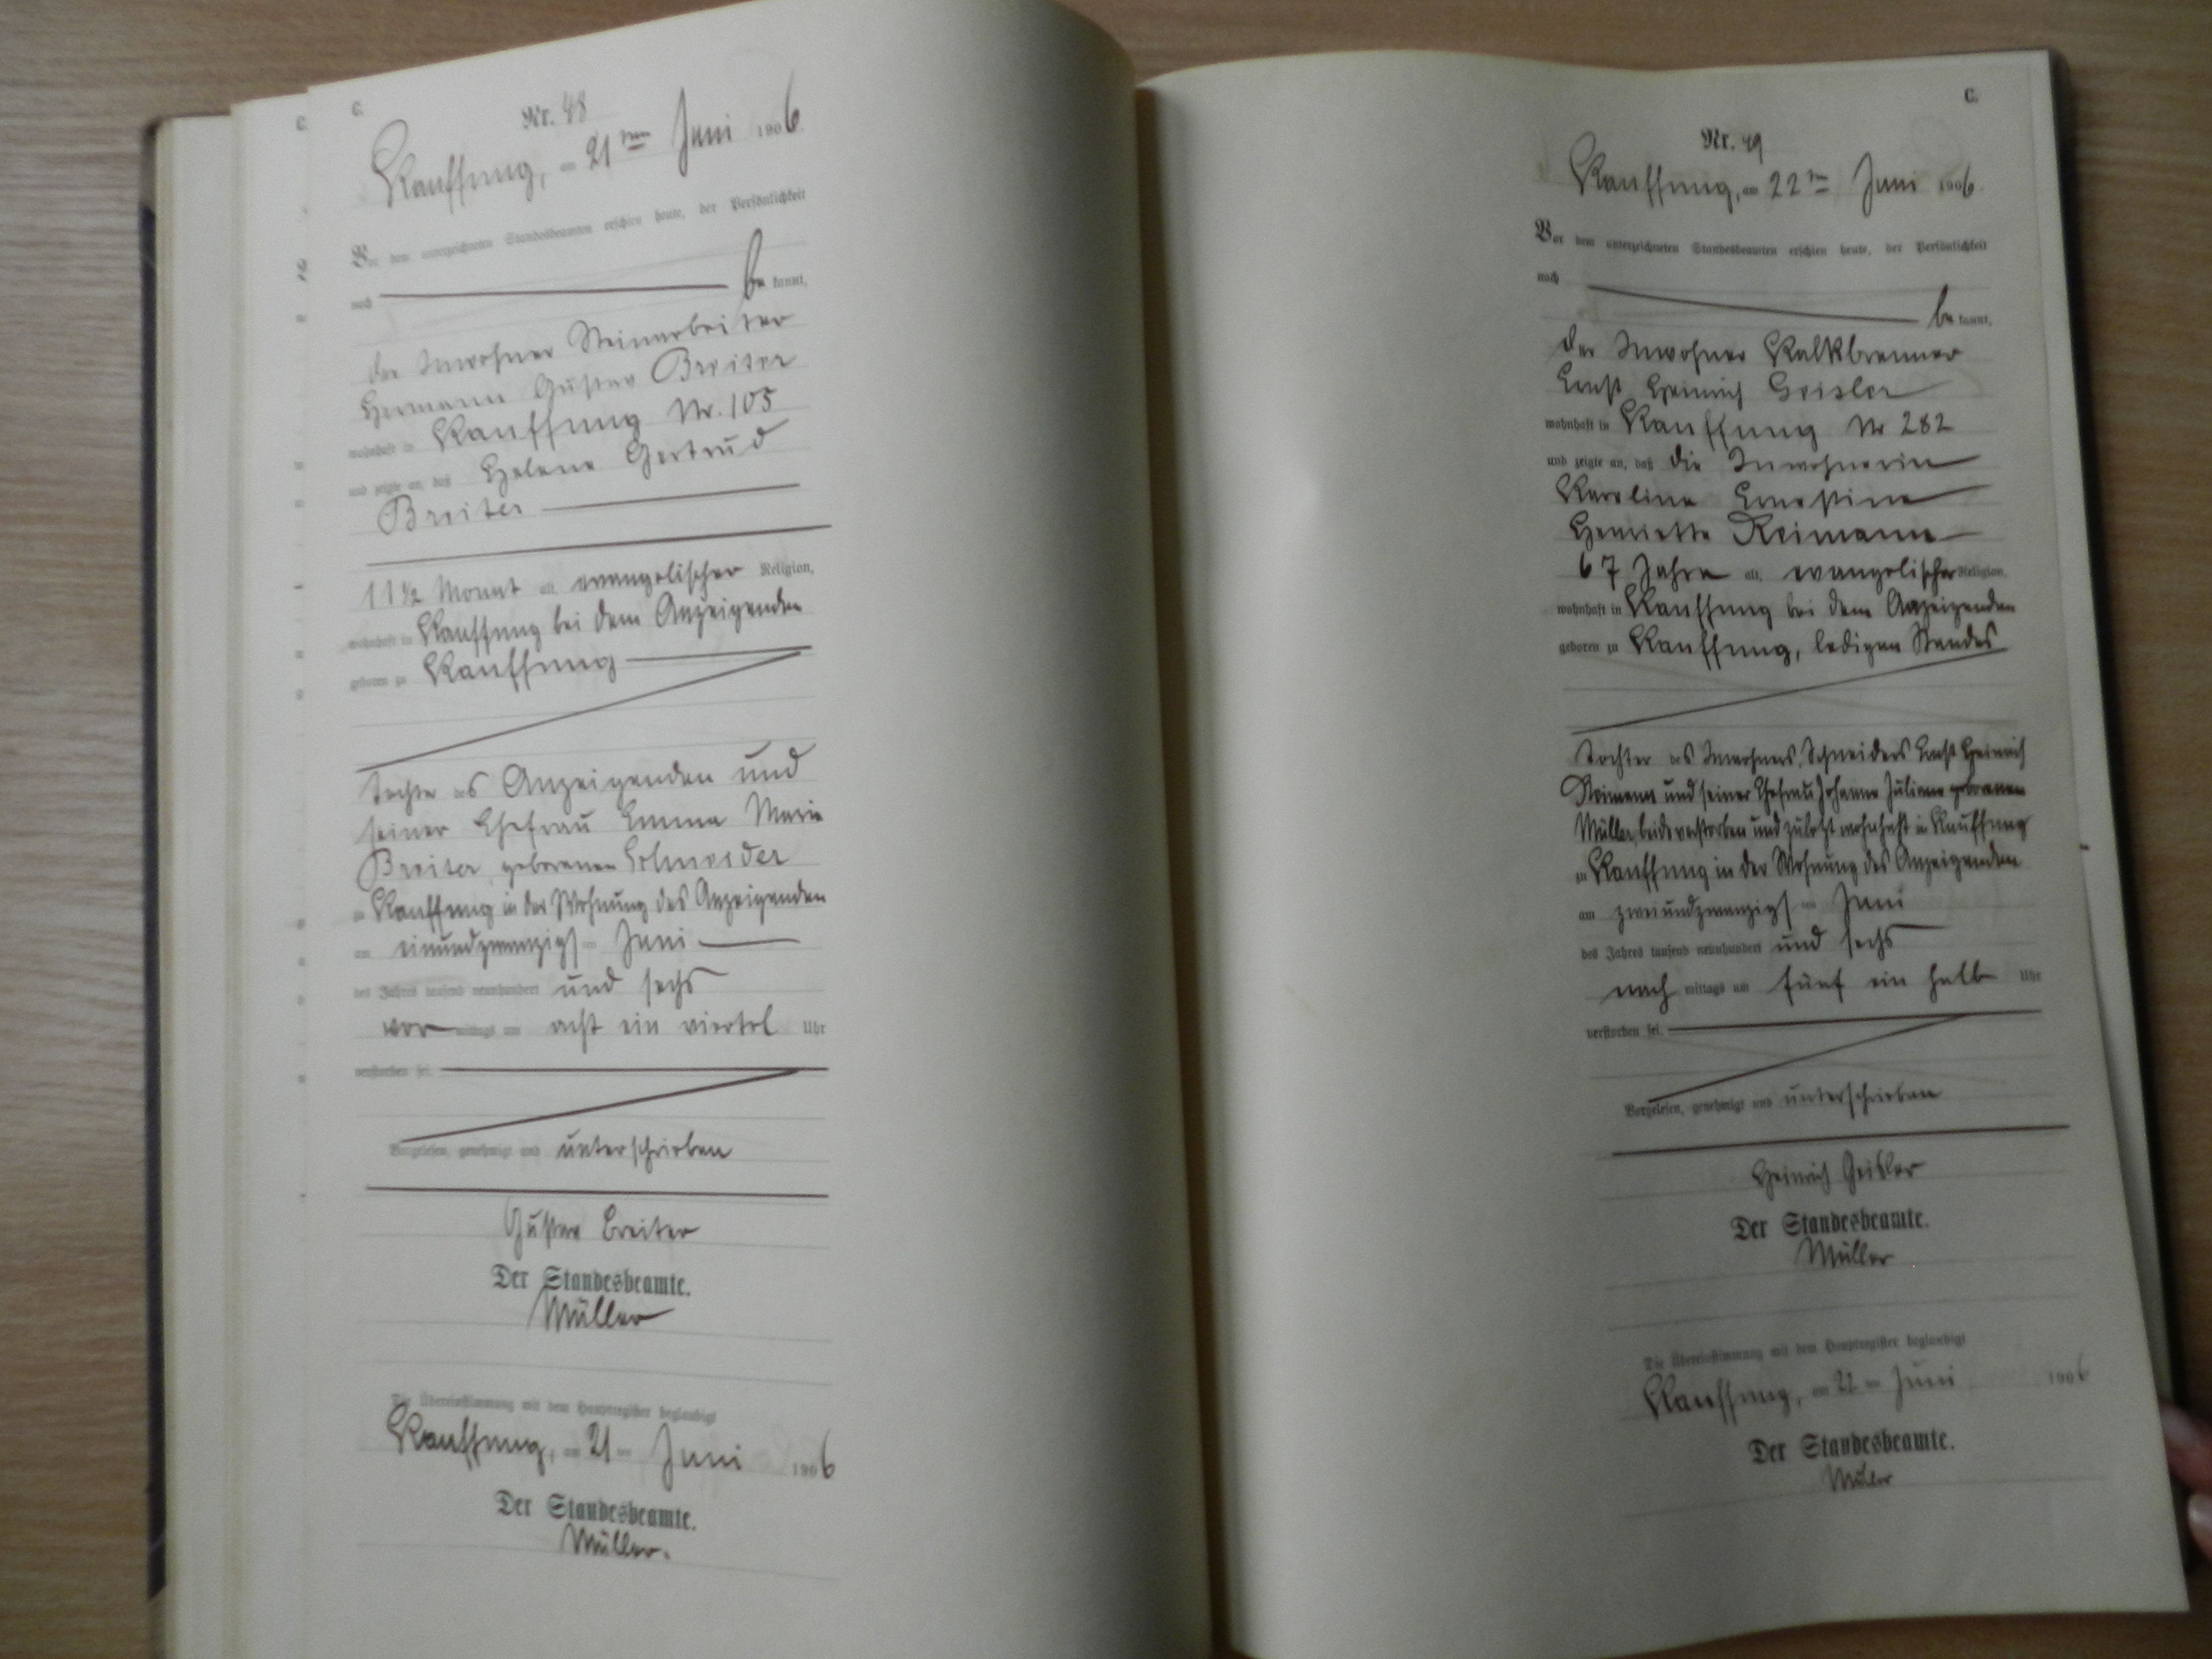 C.
Nr. 48
Kauffung, am 21ten Juni 1906.
Vor dem unterzeichneten Standesbeamten erschien heute, der Persönlichkeit
nach
be kannt,
der Inwohner Steinarbeiter
Hermann Gustav Breiter
wohnhaft in Kauffung Nr. 105
und zeigte an, daß Helene Gertrud
Breiter
11 1/2 Monat alt, evangelischer Religion,
wohnhaft in Kauffung bei dem Anzeigenden
geboren zu Kauffung
Tochter des Anzeigenden und
seiner Ehefrau Emma Marie
Breiter, geborenen Schneider
zu Kauffung in der Wohnung des Anzeigenden
am einundzwanzigsten Juni
des Jahres tausend neunhundert und sechs
vor mittags um acht ein viertel Uhr
verstorben sei.
Vorgelesen, genehmigt und unterschrieben
Gustav Breiter
Der Standesbeamte.
Müller
Die Übereinstimmung mit dem Hauptregister beglaubigt
Kauffung, am 21 ten Juni 1906
Der Standesbeamte.
Müller.
C.
Nr. 49
Kauffung, am 22ten Juni 1906.
Vor dem unterzeichneten Standesbeamten erschien heute, der Persönlichkeit
nach
be kannt,
der Inwohner Kalkbrenner
Ernst Heinrich Geisler
wohnhaft in Kauffung Nr 282
und zeigte an, daß die Inwohnerin
Karoline Ernestine
Henriette Reimann
67 Jahre alt, evangelischer Religion,
wohnhaft in Kauffung bei dem Anzeigenden
geboren zu Kauffung, ledigen Standes
Tochter des Inwohners, Schneiders Ernst Heinrich
Reimann und seiner Ehefrau Johanne Juliane geborenen
Müller, beide verstorben und zuletzt wohnhaft in Kauffung
zu Kauffung in der Wohnung des Anzeigenden
am zweiundzwanzigsten Juni
des Jahres tausend neunhundert und sechs
nach mittags um fünf ein halb Uhr
verstorben sei.
Vorgelesen, genehmigt und unterschrieben
Heinrich Geisler
Der Standesbeamte.
Müller
Die Übereinstimmung mit dem Hauptregister beglaubigt
Kauffung, am 22 ten Juni 1906
Der Standesbeamte.
Müller